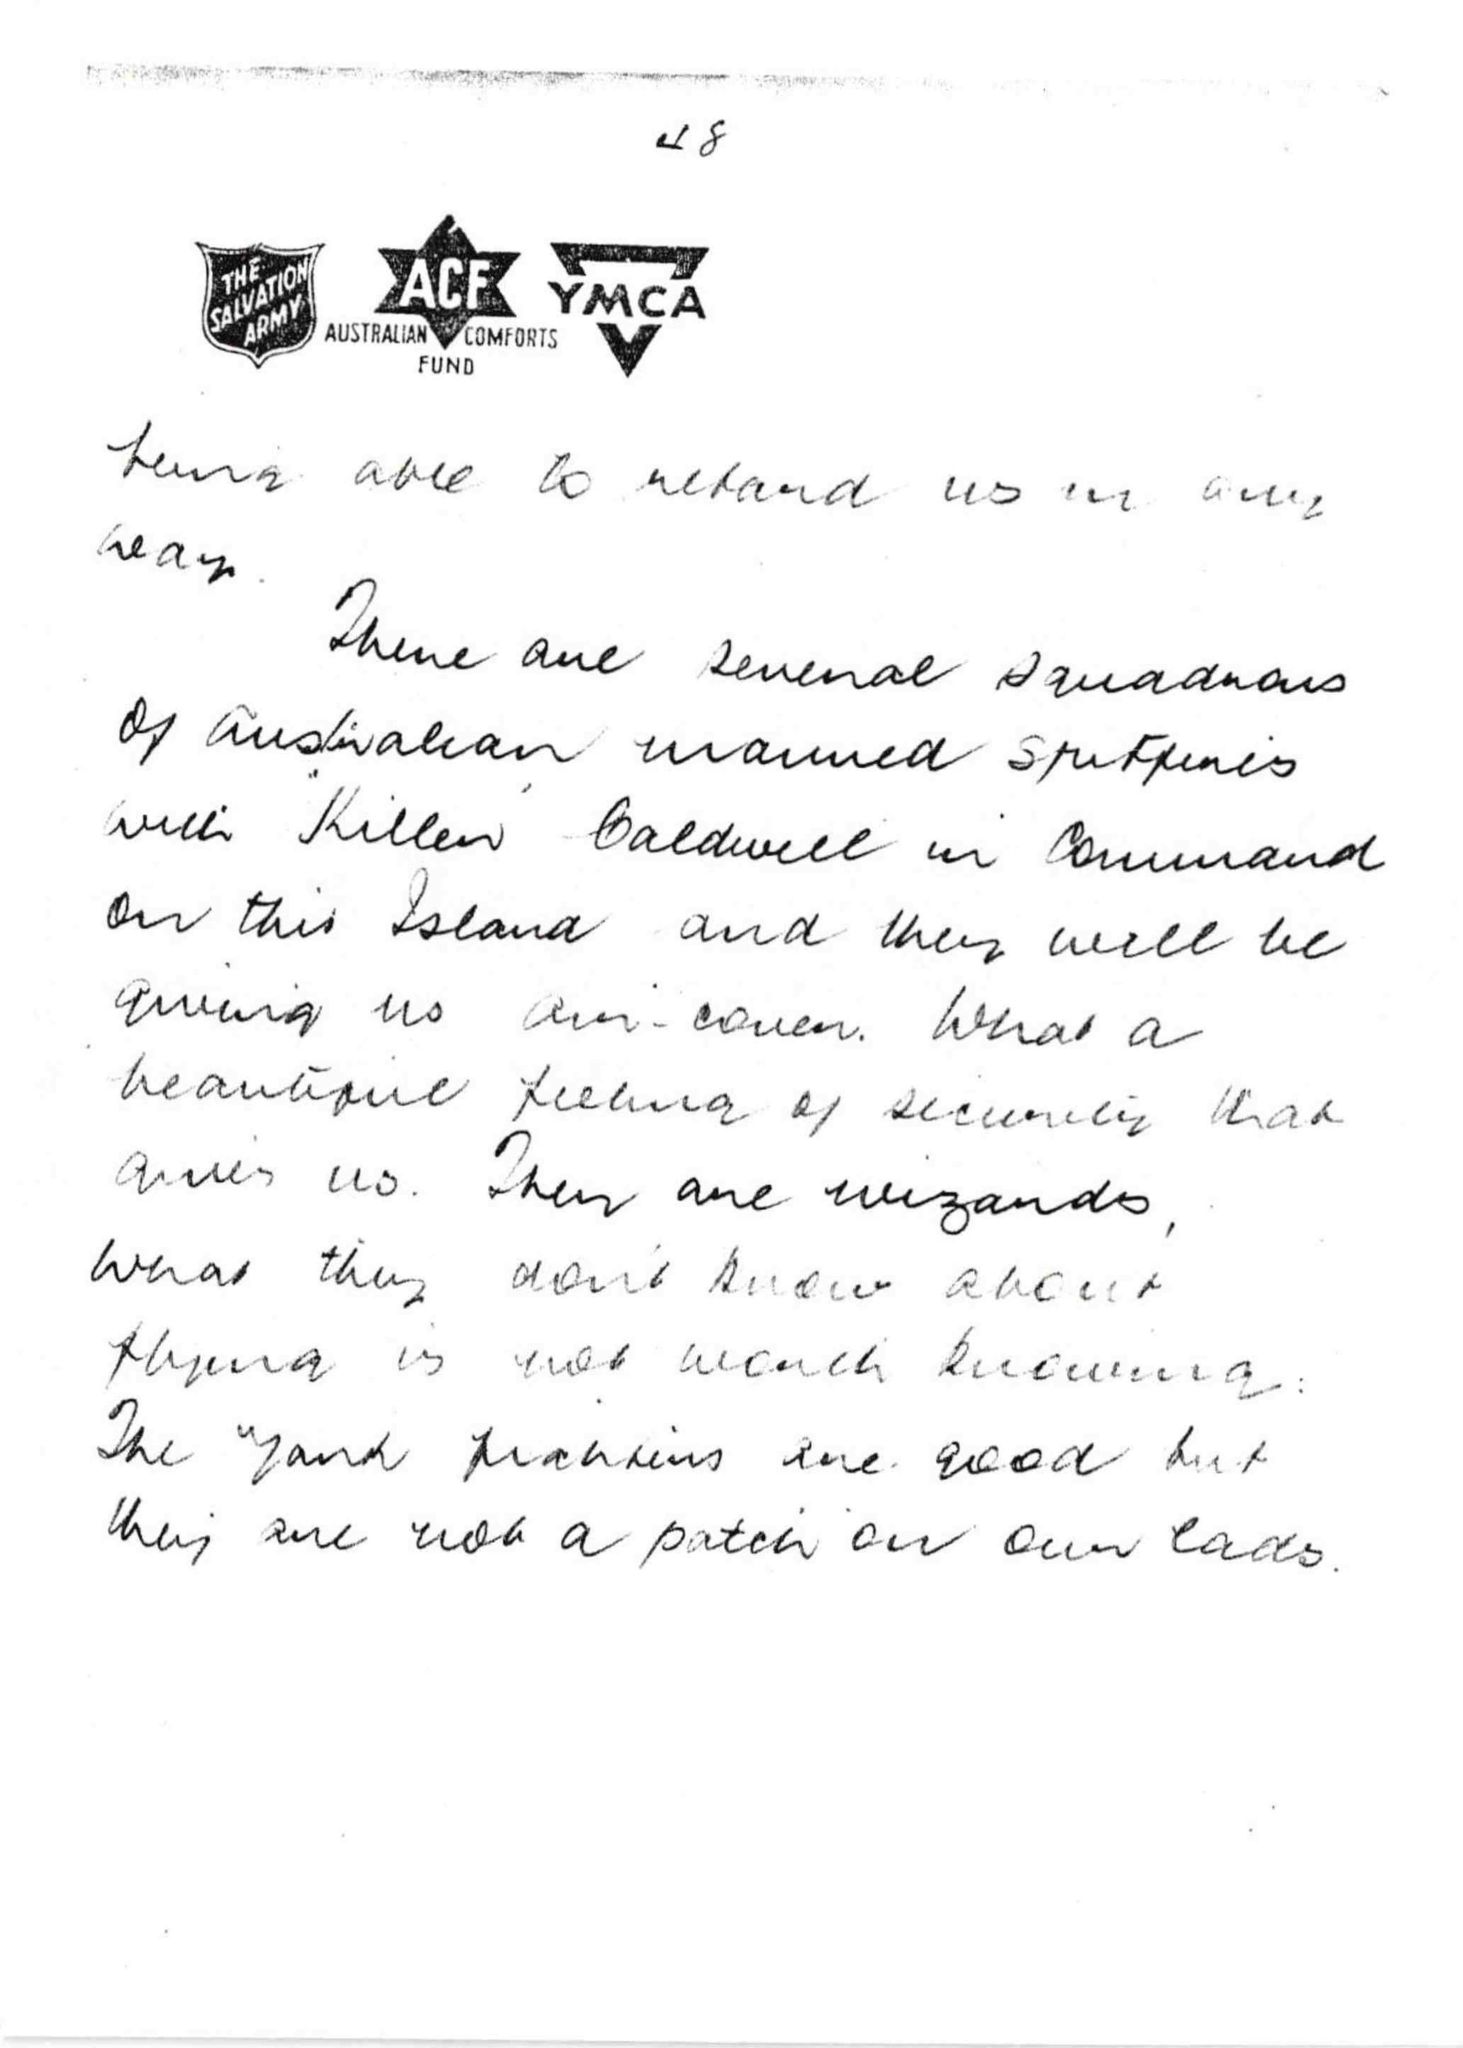 48
THE
SALVATION
ARMY
ACF
AUSTRALIAN COMFORTS
FUND
YMCA
being able to retard us in any
way.
There are several squadrons
of Australian manned Spitfires
with "Killer" Caldwell in Command
on this Island and they will be
giving us air-cover. What a
beautiful feeling of security that
gives us. They are wizards,
what they don't know about
flying is not worth knowing.
The Yank fighters are good but
they are not a patch on our lads.